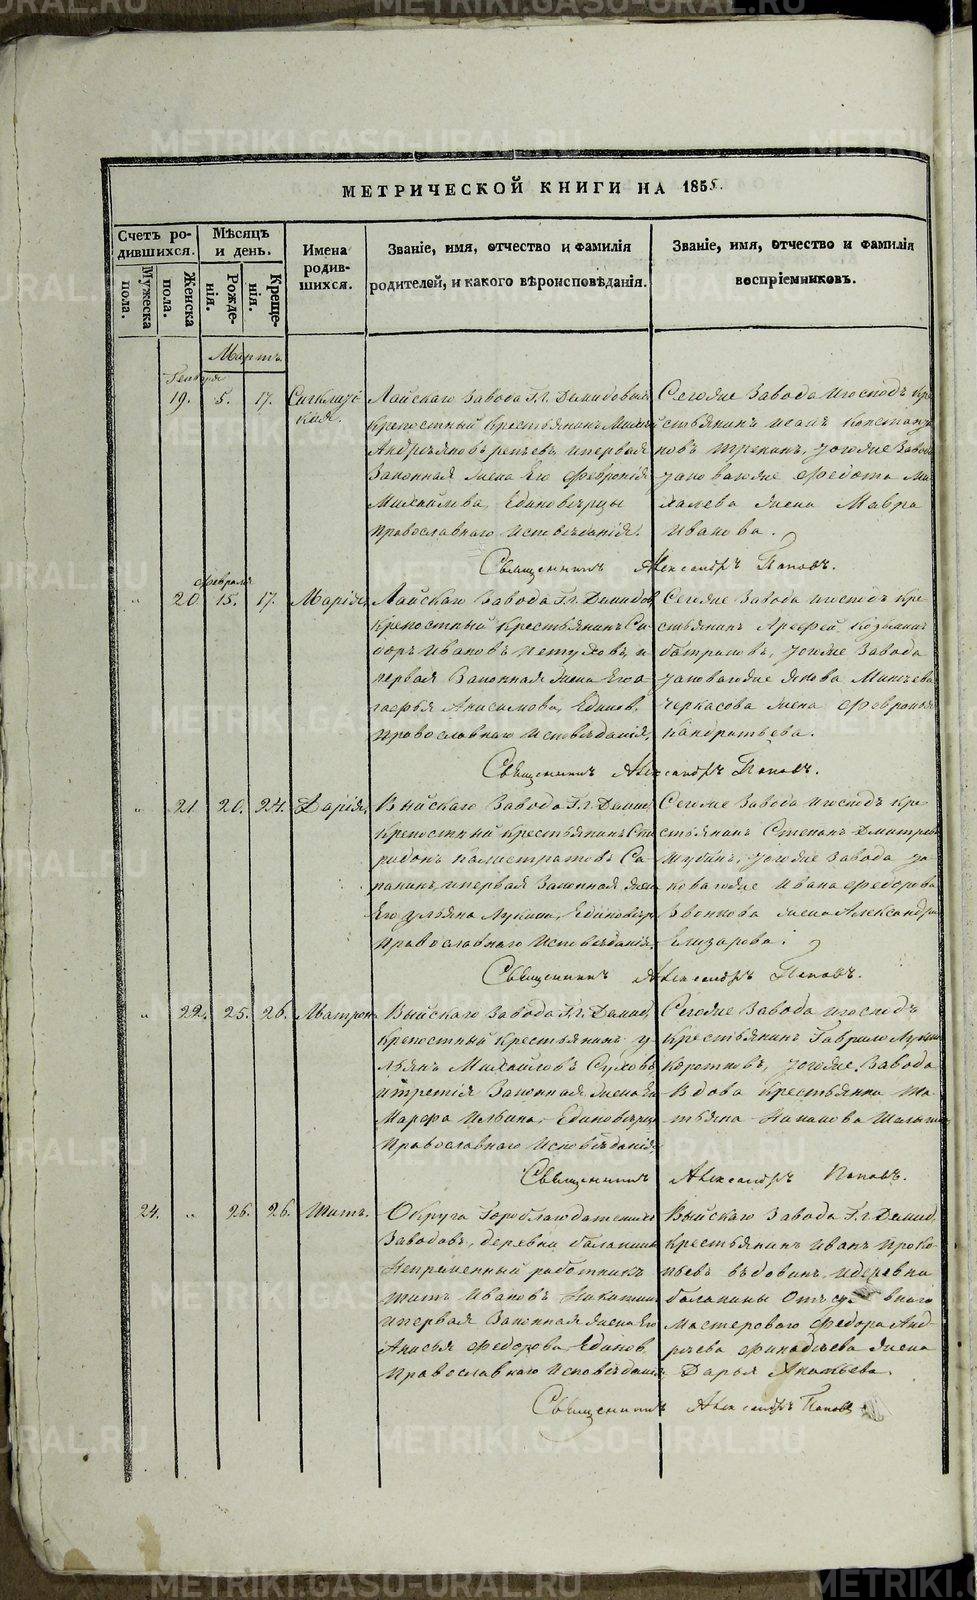 METRIKI.GASO-URAL.RU
МЕТРИЧЕСКОЙ КНИГИ НА 1855.
Счетъ ро-
дившихся.
Мужеска
пола.
Женска
пола.
Мѣсяцъ
и день.
Рожде-
нія.
Креще-
нія.
Имена
родив-
шихся.
Званіе, имя, отчество и фамилія
родителей, и какого вѣроисповѣданія.
Званіе, имя, отчество и фамилія
воспріемниковъ.
Мартъ
Генваря
19. 5. 17.
Лайскаго Завода Гг. Демидовыхъ
Крепостный Крестьянинъ
и первая
Законная жена Его Феврония
Михайлова, Единоверцы
Православнаго Исповѣданія.
Сегоже Завода Господъ Кре-
стьянинъ Исакъ Констант
тогоже Завода
Федота Ми-
халева жена Мавра
Иванова.
Священникъ Александръ Поповъ.
Февраля
" 20 15. 17. Марія
Лайскаго Завода Гг. Демидов
Крепостный Крестьянинъ Си-
доръ Ивановъ Петуховъ, и
первая Законная жена Его А-
гафья Анисимова, Единов.
Православнаго Исповѣданія.
Сегоже Завода Господъ Кре-
стьянинъ Арефей Козьминъ
тогоже Завода
Якова
Черкасова жена Февронья
Кандратьева.
Священникъ Александръ Поповъ.
" 21. 20. 24. Дарія
Выйскаго Завода Гг. Демид.
Крепостный Крестьянинъ Спи
ридонъ Калистратовъ Са-
и первая Законная жена
Его Ульяна Лукина, Единовер
Православнаго Исповѣданія.
Сегоже Завода Господъ Кре-
стьянинъ Степанъ Дмитріевъ
Шубинъ, тогоже Завода
Ивана Федорова
Звонкова жена Александра
Елизарова.
Священникъ Александръ Поповъ.
" 22. 25. 26. Матрона
Выйскаго Завода Гг. Демид.
Крепостный Крестьянинъ У-
льянъ Михайловъ Суховъ
и третія Законная жена Его
Марфа Ильина, Единоверцы
Православнаго Исповѣданія
Сегоже Завода Господъ
Крестьянинъ Гаврило Лукинъ
Коротковъ, тогоже Завода
Вдова Крестьянка Та-
тьяна
Священникъ Александръ Поповъ.
24. " 26. 26. Титъ.
Округа Гороблагодатскихъ
Заводовъ, деревни Балакина
Непременный работникъ
Титъ Ивановъ Никитинъ
и первая Законная жена Его
Анисья Федорова Единов.
Православнаго Исповѣданія
Выйскаго Завода Гг. Демид.
Крестьянинъ Иванъ Проко-
пьевъ Вдовинъ, и деревни
Балакины
Мастероваго Федора Анд-
реева жена
Дарья
Священникъ Александръ Поповъ